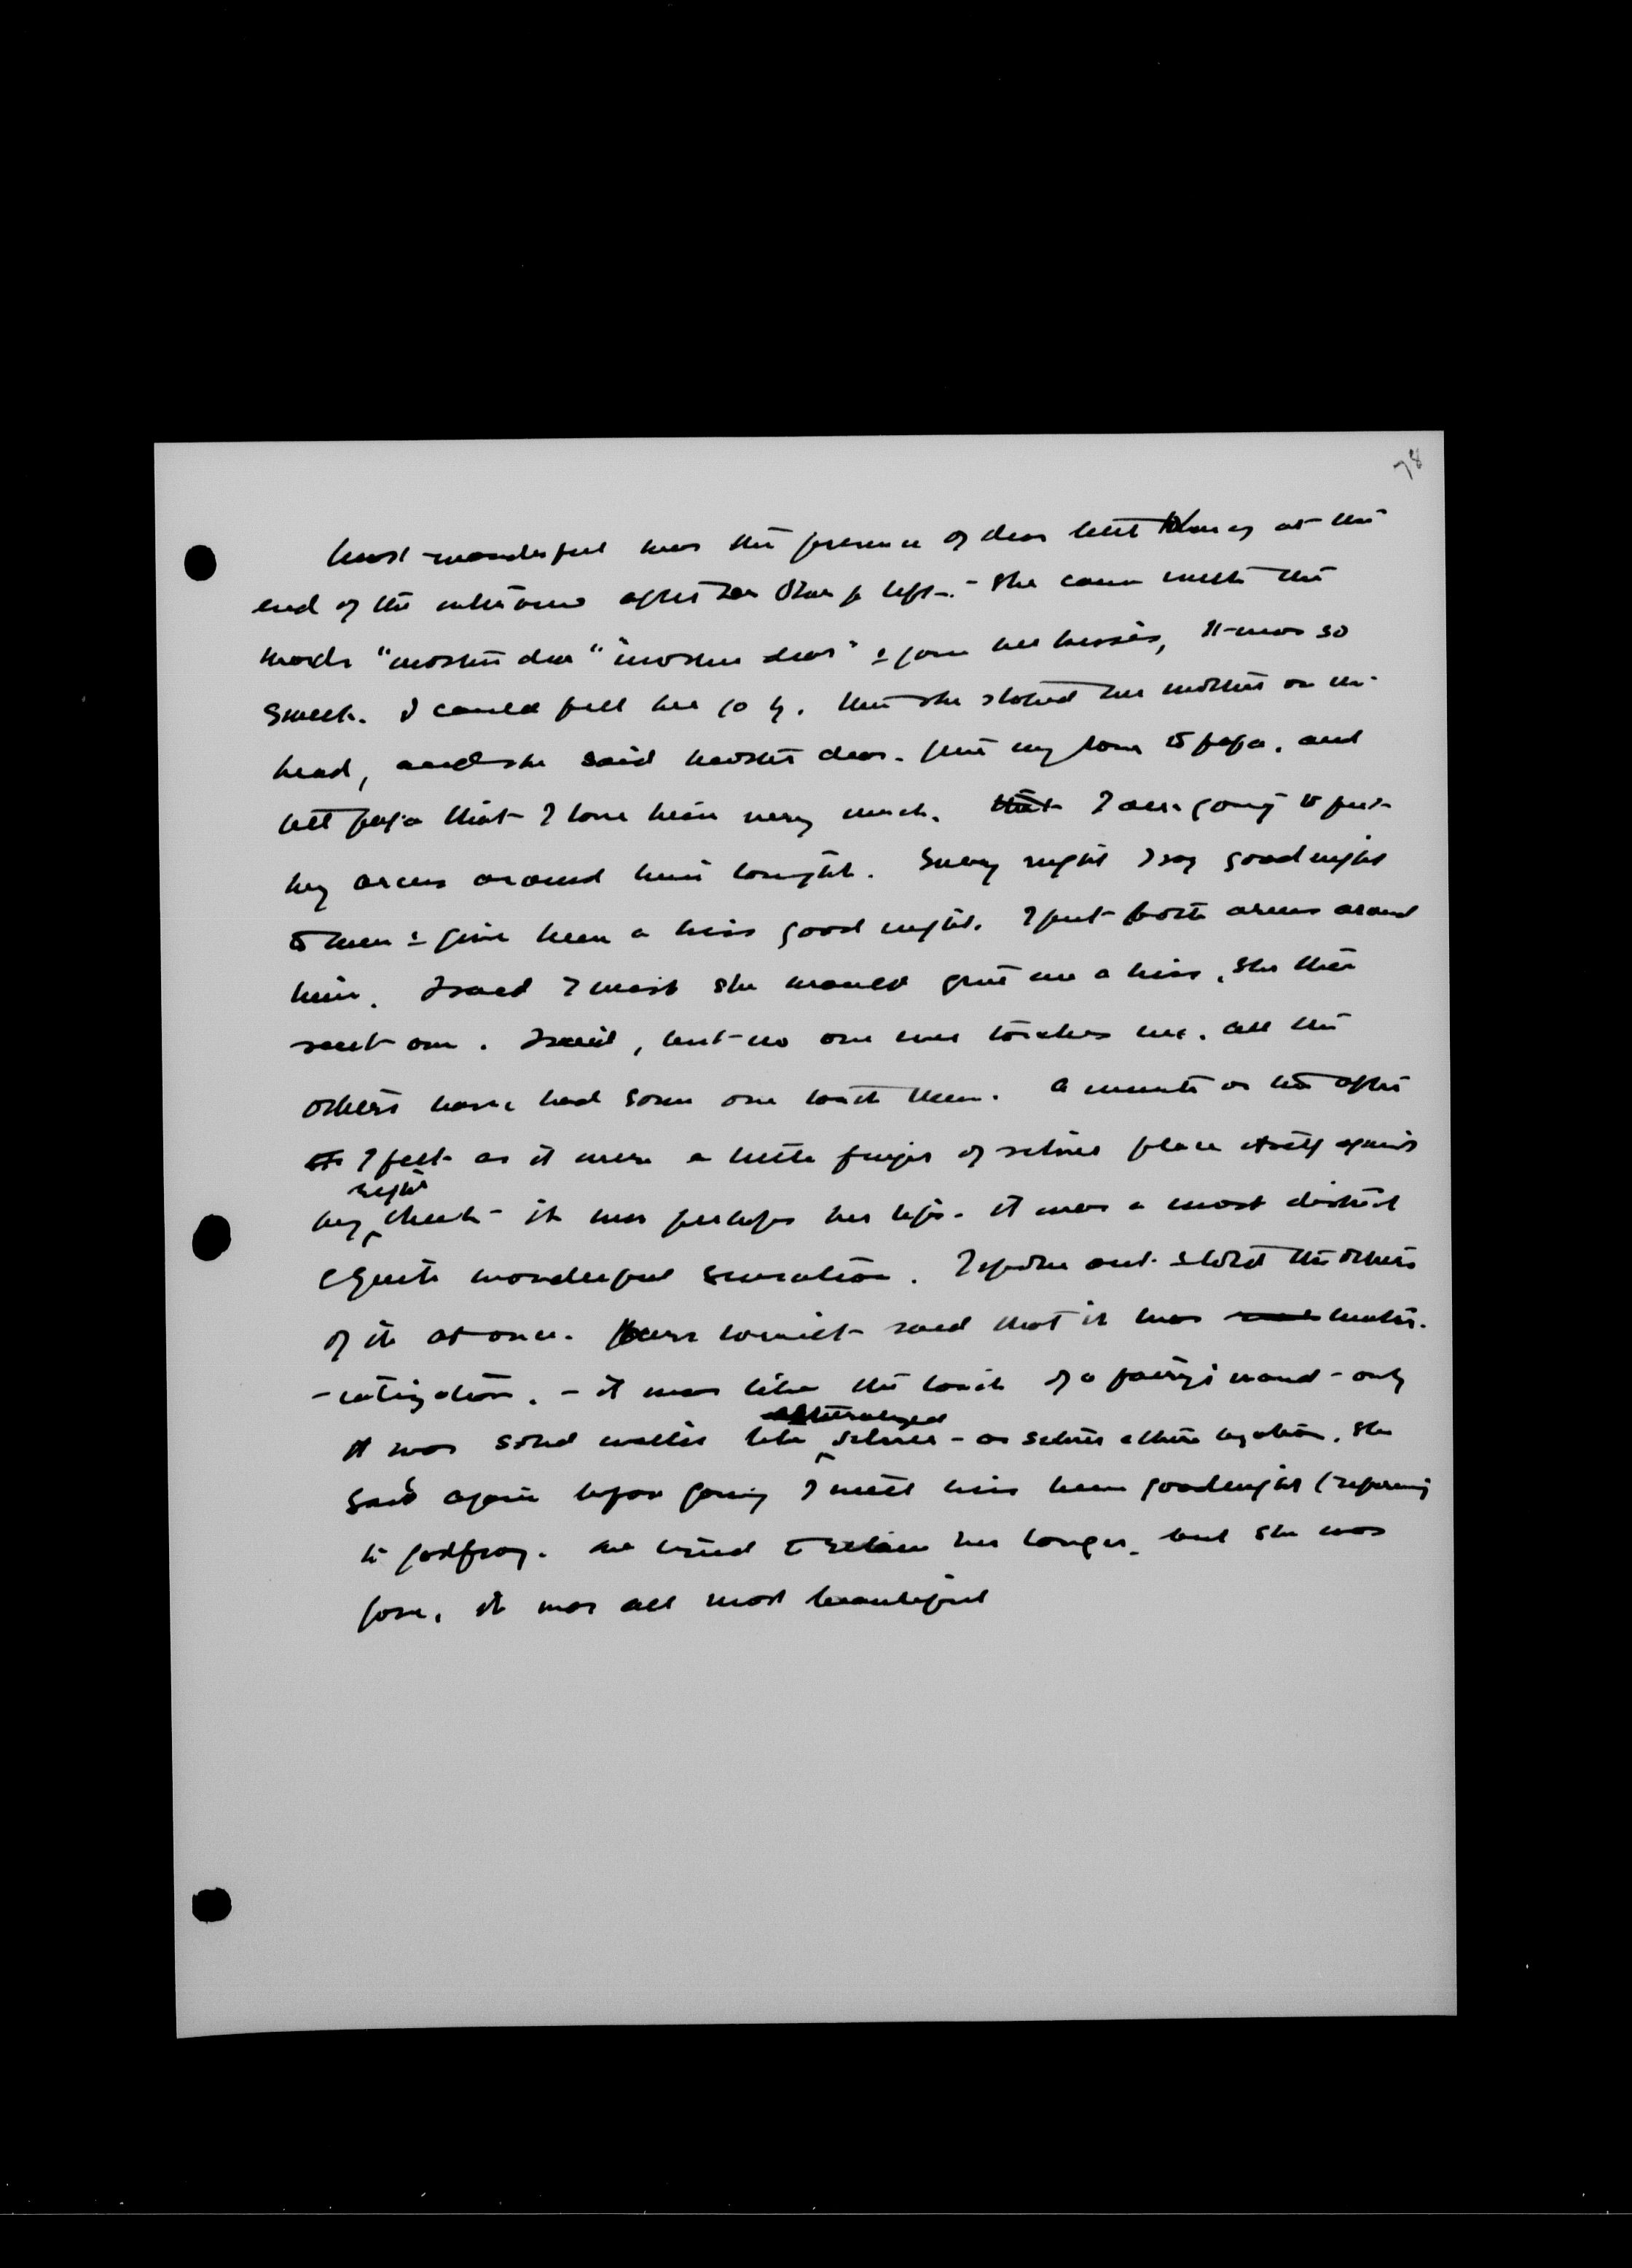 78
Most wonderful was the presence of dear little Nancy at the
end of the interview after left. - She came with the
words "mother dear" "mother dear" & gave me kisses, It was so
sweet. I could feel her joy. then she her mother on the
head, and she said mother dear. give my love to papa. and
tell papa that I love him very much. that I am going to put
my arms around him tonight. Every night I say good night
to him & give him a kiss good night. I put both arms around
him. I said I wish she would give me a kiss, she then
sent one. I said, but no one ever touches me. all the
others have had some one touch them. a minute or two after
I felt as it were a little finger of silver place itself against
right
my cheek - it was perhaps her lips. it was a most distinct
& quite wonderful sensation. I spoke out & told the others
of it at once. said that it was materi-
-alization. - it was like the touch of a fairy's wand - only
etherealized
it was solid matter like silver - or silver etherealization. She
said again before going I will kiss him goodnight (referring
to Godfrey. We tried to retain her longer, but she was
gone. it was all most beautiful